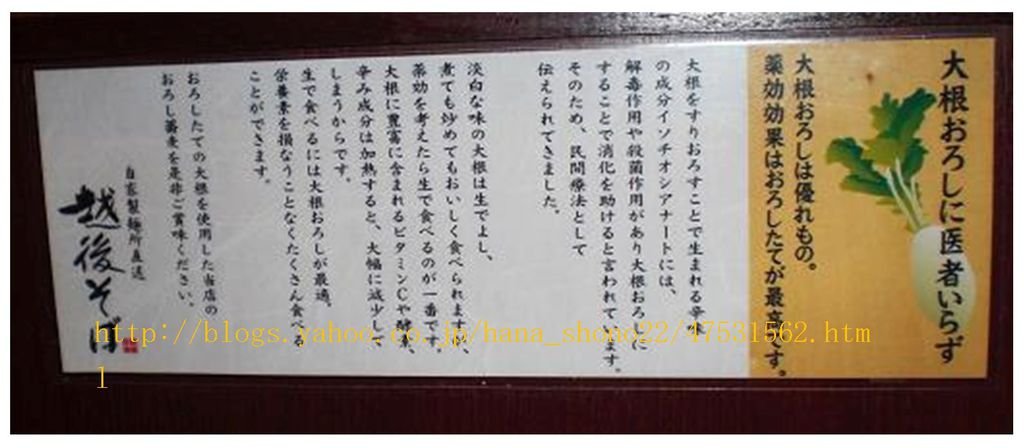 大根おろしに医者いらず
大根おろしは優れもの。
薬効効果はおろしたてが最高です。
大根をすりおろすことで生まれる辛み
の成分イソチオシアナートには、
解毒作用や殺菌作用があり大根おろしに
することで消化を助けると言われています。
そのため、民間療法として
伝えられてきました。
淡白な味の大根は生でよし、
煮ても炒めてもおいしく食べられますが、
薬効を考えたら生で食べるのが一番です。
大根に豊富に含まれるビタミンCや酵素、
辛み成分は加熱すると、大幅に減少して
しまうからです。
生で食べるには大根おろしが最適。
栄養素を損なうことなくたくさん食べる
ことができます。
おろしたての大根を使用した当店の
おろし蕎麦を是非ご賞味ください。
自家製麺所直送
越後そば
http://blogs.yahoo.co.jp/hana_shono22/47531562.htm
l